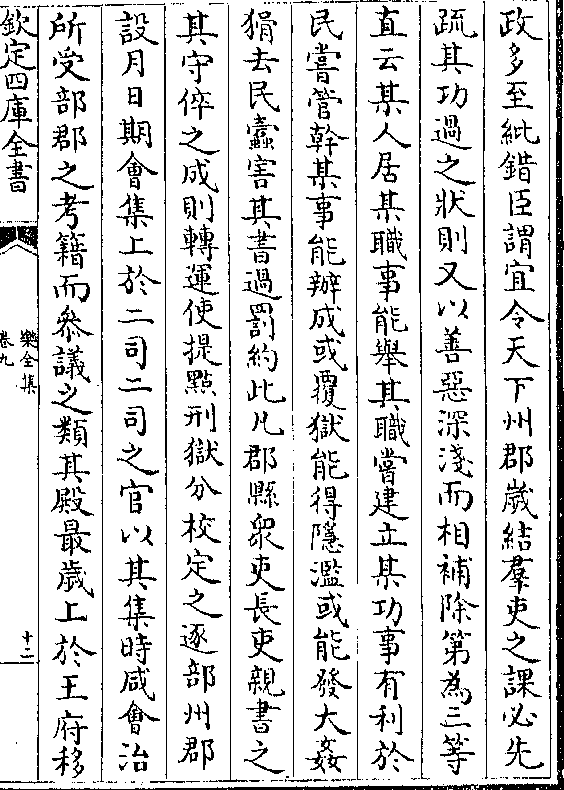 政多至紕錯臣謂宜令天下州郡嵗結羣吏之課必先
疏其功過之狀則又以善惡深淺而相補除第為三等
直云某人居某職事能舉其職嘗建立某功事有利於
民嘗管幹某事能辦成或覆獄能得隱濫或能發大姦
猾去民蠧害其書過罰約此凡郡縣衆吏長吏親書之
其守倅之成則轉運使提㸃刑獄分校定之逐部州郡
設月日期會集上於二司二司之官以其集時咸會治
所受部郡之考籍而叅議之類其殿最嵗上於王府移
欽定四庫全書
樂全集
卷九
十二